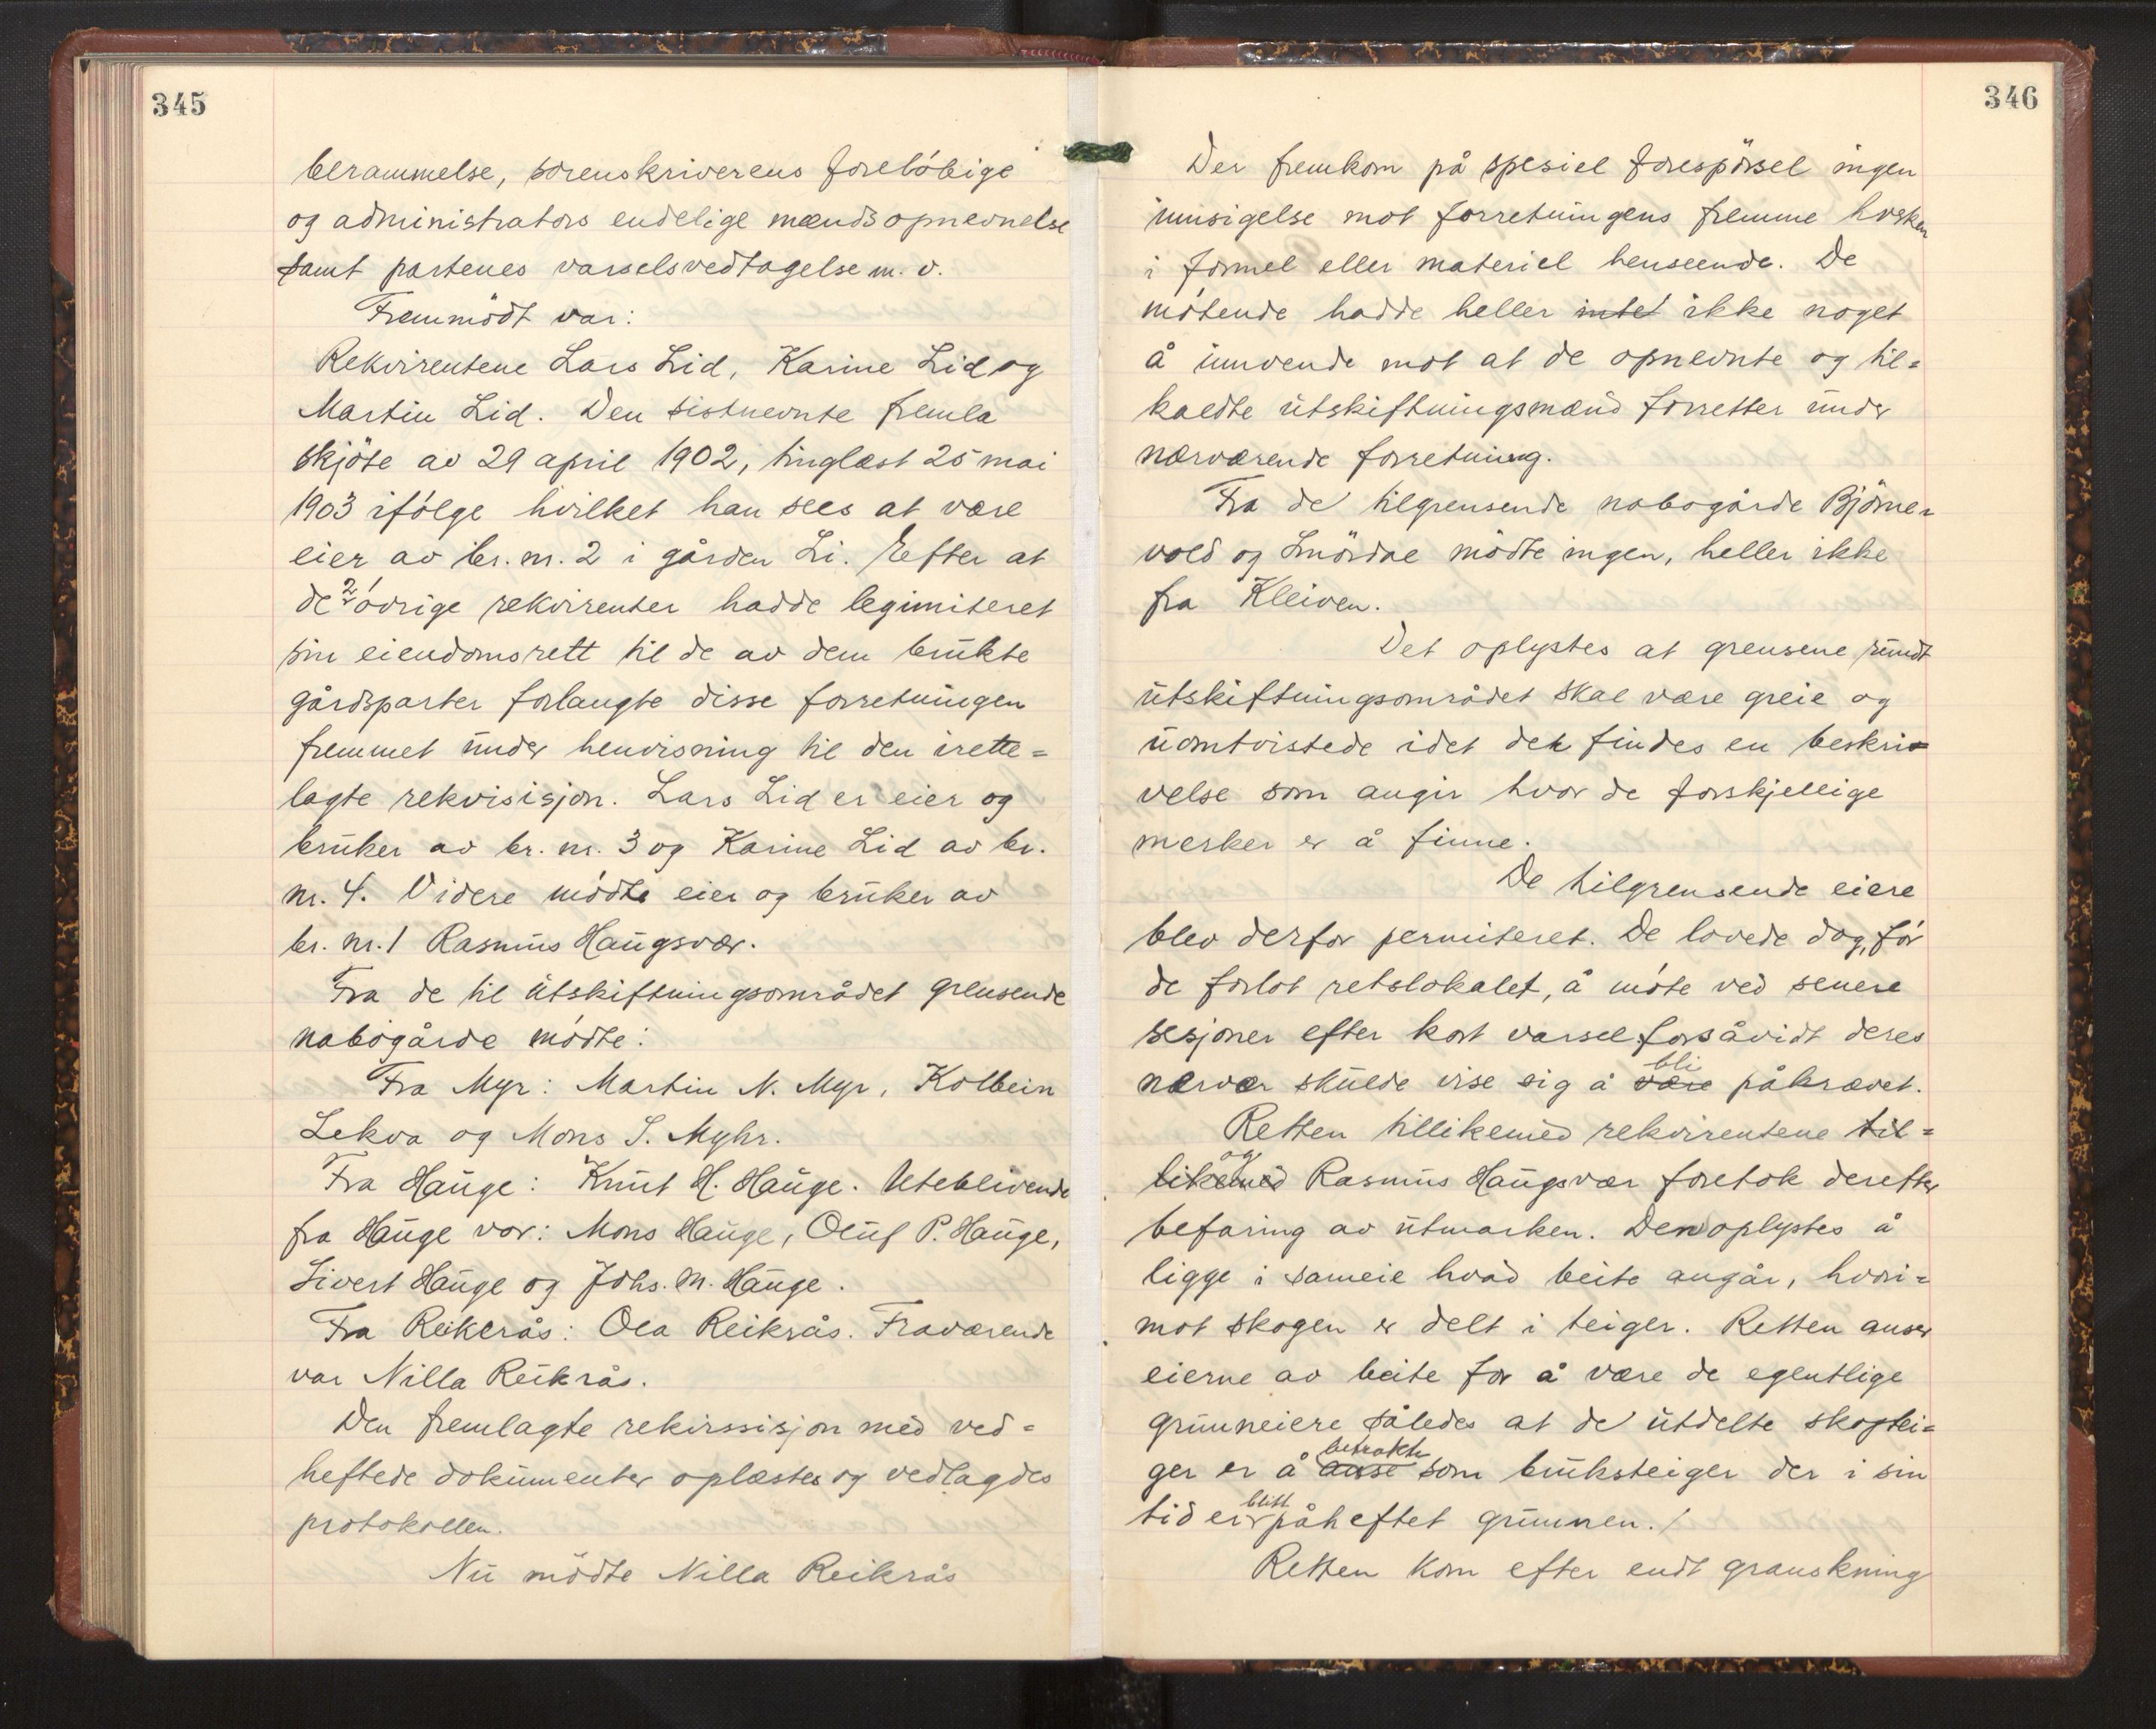 345
berammelse, sorenskriverens foreløbige
og administrators endelige mændsopnevnelse
samt partenes varselsvedtagelse m. v.
Fremmødt var:
Rekvirentene Lars Lid, Karine Lid og
Martin Lid. Den sistnevnte fremla
skjøte av 29 april 1902, tinglæst 25 mai
1903 ifølge hvilket han sees at være
eier av br. nr. 2 i gården Li. Efter at
de 2 øvrige rekvirenter hadde legimiteret
sin eiendomsrett til de av dem brukte
gårdsparter forlangte disse forretningen
fremmet under henvisning til den irette=
lagte rekvisisjon. Lars Lid er eier og
bruker av br. nr. 3 og Karine Lid av br.
nr. 4. Videre mødte eier og bruker av
br. nr. 1 Rasmus Haugsvær.
Fra de til utskiftningsområdet grensende
nabogårde mødte:
Fra Myr: Martin N. Myr, Kolbein
Lekva og Mons S. Myhr.
Fra Hauge: Knut H. Hauge. Uteblivende
fra Hauge var: Mons Hauge, Oluf P. Hauge,
Sivert Hauge og Johs. M. Hauge.
Fra Reikrås: Ola Reikrås. Fraværende
var Nilla Reikrås.
Den fremlagte rekirssisjon med ved=
heftede dokumenter oplæstes og vedlagdes
protokollen.
Nu mødte Nilla Reikrås
346
Der fremkom på spesiel forespørsel ingen
innsigelse mot forretningens fremme hvsken
i formel eller materiel henseende. De
møtende hadde heller intet ikke noget
å innvende mot at de opnevnte og til=
kaldte utskiftningsmænd forretter under
nærværende forretning.
Fra de tilgrensende nabogårde Bjørne=
vold og Smørdal mødte ingen, heller ikke
fra Kleiven.
Det oplystes at grensene rundt
utskiftningsområdet skal være greie og
uomtvistede idet det findes en beskri=
velse som angir hvor de forskjellige
merker er å finne.
De tilgrensende eiere
blev derfor permiteret. De lovede dog, før
de forlot retslokalet, å møte ved senere
sesjoner efter kort varsel forsåvidt deres
nærvær skulde vise sig å være bli påkrævet.
Retten tillikemed rekvirentene til=
likemed og Rasmus Haugsvær foretok derefter
befaring av utmarken. Den oplystes å
ligge i sameie hvad beite angår, hvori=
mot skogen er delt i teiger. Retten anser
eierne av beite for å være de egentlige
grunneiere således at de utdelte skogtei=
ger er å anse betrakte som bruksteiger der i sin
tid er blitt påheftet grunnen. /
Retten kom efter endt granskning